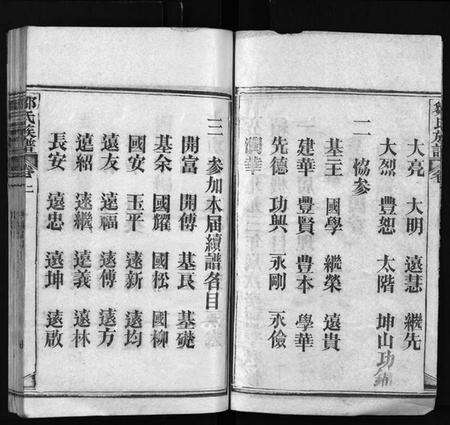 鄒氏族譜 卷
大亮 大明 遠慧 繼先
大烈 豐恕 太階 坤山 功
二 協參
基主 國學 繼榮 遠貴
建華 豐賢 豐本 學華
先德 功興 永剛 永儉
潤華
三 參加本屆續譜各目
開富 開傳 基長 基礎
基余 國耀 國松 國柳
國安 玉平 遠新 遠均
遠友 遠福 遠傳 遠方
遠紹 遠繼 遠義 遠林
長安 遠忠 遠坤 遠啟
鄒氏族譜 卷二